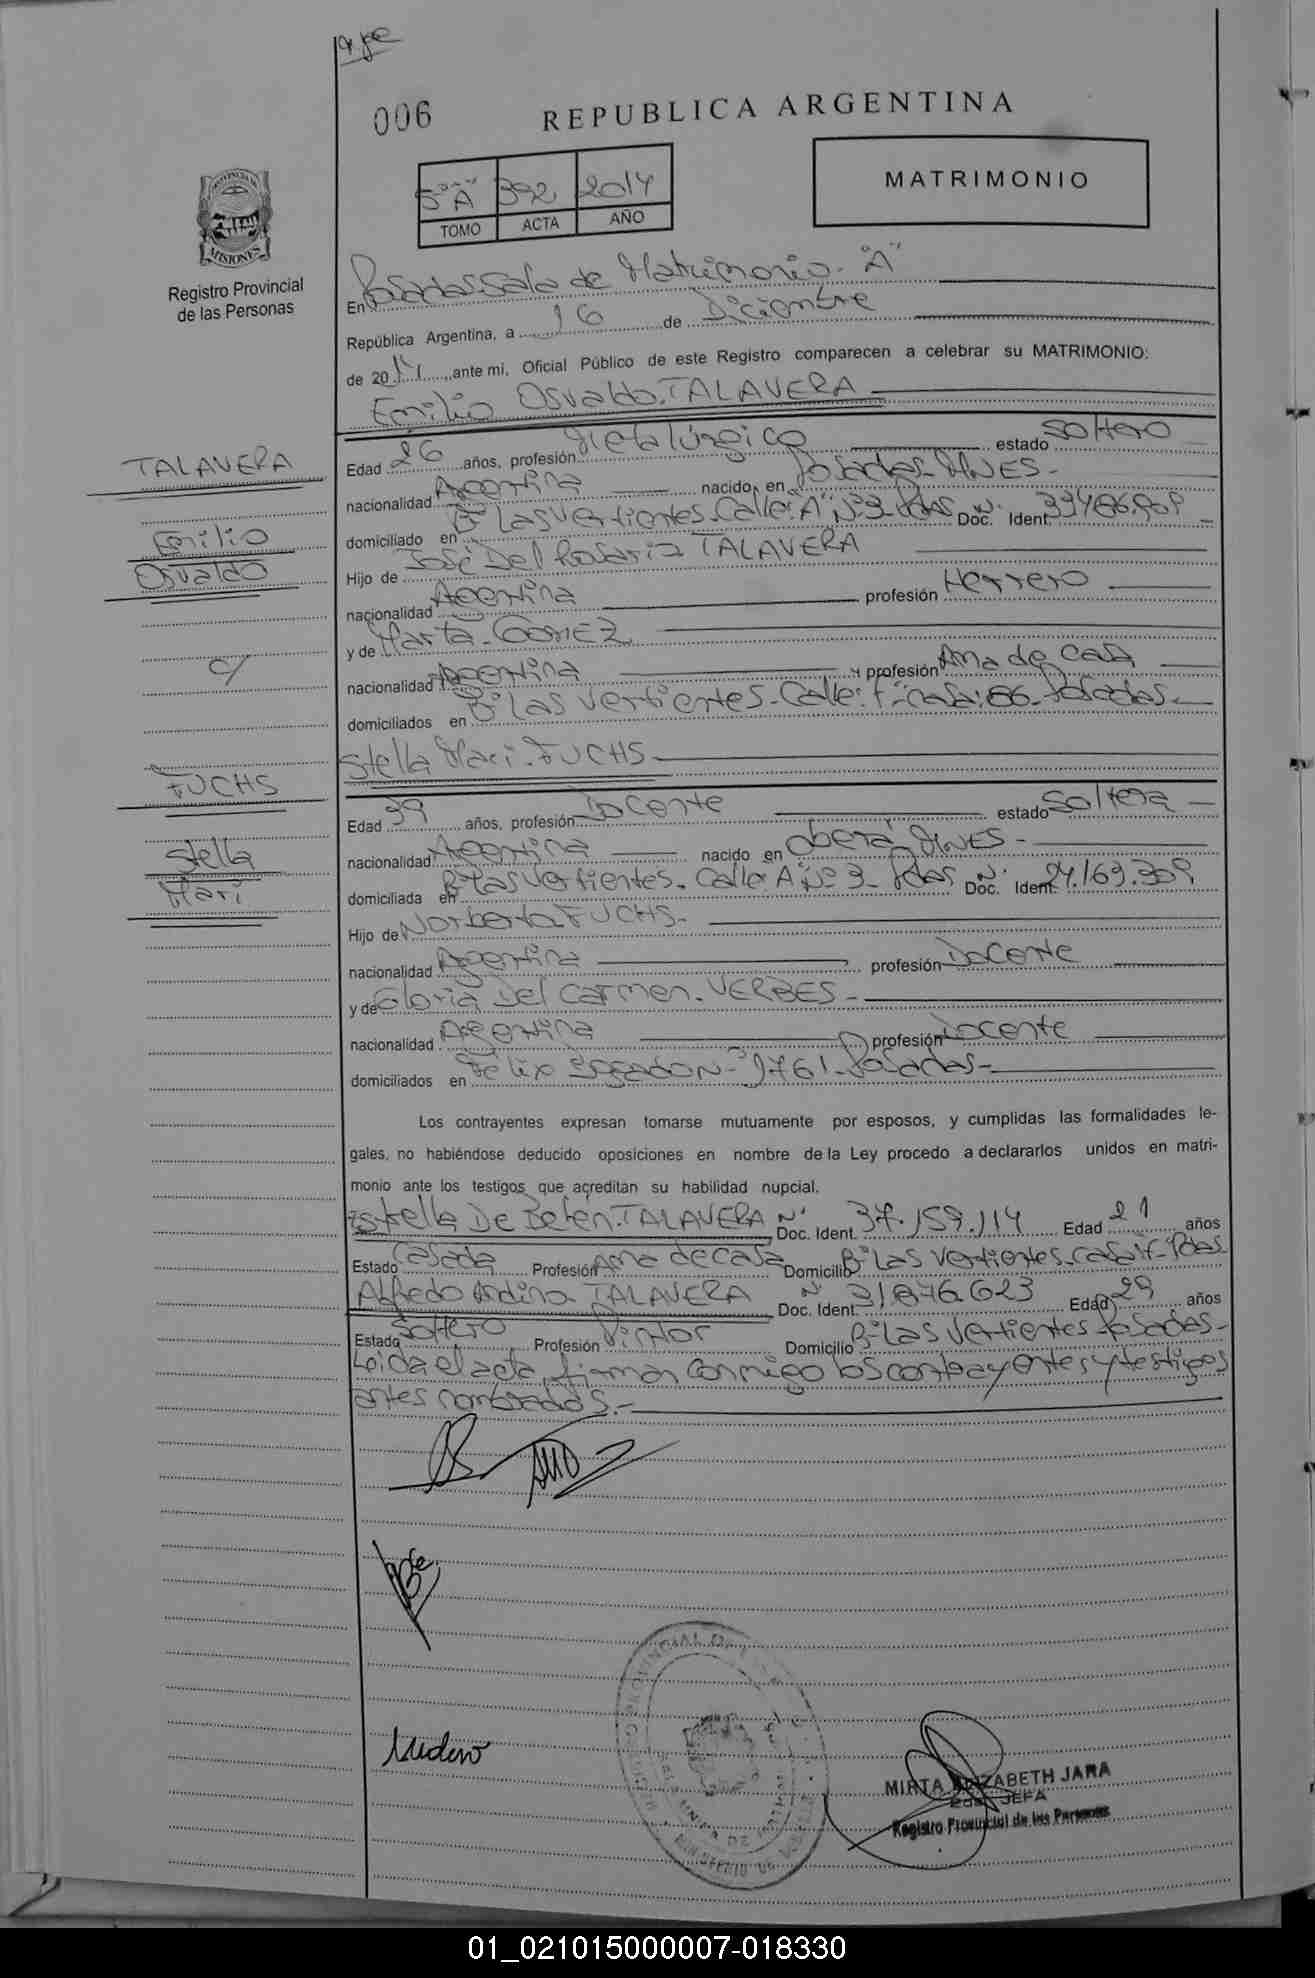 006
REPUBLICA ARGENTINA
5° "A" 392 2014
TOMO ACTA AÑO
MATRIMONIO
MISIONES
Registro Provincial
de las Personas
En Posadas Sala de Matrimonio. "A"
República Argentina, a 16 de Diciembre
de 2014, ante mi, Oficial Público de este Registro comparecen a celebrar su MATRIMONIO:
Emilio Osvaldo. TALAVERA
TALAVERA
Emilio
Osvaldo
c/
FUCHS
Stella
Mari
Edad 26 años, profesión Metalúrgico estado Soltero
nacionalidad Argentina nacido en Posadas - MNES -
domiciliado en B° Las Vertientes - Calle: "A" N° 3 - Pdas Doc. Ident. N°
Hijo de José Del Rosario TALAVERA
nacionalidad Argentina profesión Herrero
y de Marta - GOMEZ
nacionalidad Argentina y profesión Ama de Casa
domiciliados en B° Las Vertientes - Calle: F - casa: 66 - Posadas -
Stella Mari. FUCHS -
Edad 39 años, profesión Docente estado Soltera -
nacionalidad Argentina nacido en Oberá - MNES -
domiciliada en B° Las Vertientes. Calle: A N° 3 - Pdas Doc. Ident. N° 24.169.309
Hijo de Norberto FUCHS -
nacionalidad Argentina profesión Docente
y de Gloria Del Carmen. VERBES -
nacionalidad Argentina profesión Docente
domiciliados en Félix 1761 - Posadas -
Los contrayentes expresan tomarse mutuamente por esposos, y cumplidas las formalidades le-
gales, no habiéndose deducido oposiciones en nombre de la Ley procedo a declararlos unidos en matri-
monio ante los testigos que acreditan su habilidad nupcial.
Estrella De Belén. TALAVERA Doc. Ident. N° 37.159.114 Edad 21 años
Estado Casada Profesión Ama de casa Domicilio B° Las Vertientes - casa - Pdas
Alfredo TALAVERA Doc. Ident. N° 31.876.623 Edad 29 años
Estado Soltero Profesión Pintor Domicilio B° Las Vertientes - Posadas -
Leida el acta, firman conmigo los contrayentes y testigos
antes nombrados. -
MIRTA ELIZABETH JARA
JEFA
Registro Provincial de las Personas
01_021015000007-018330